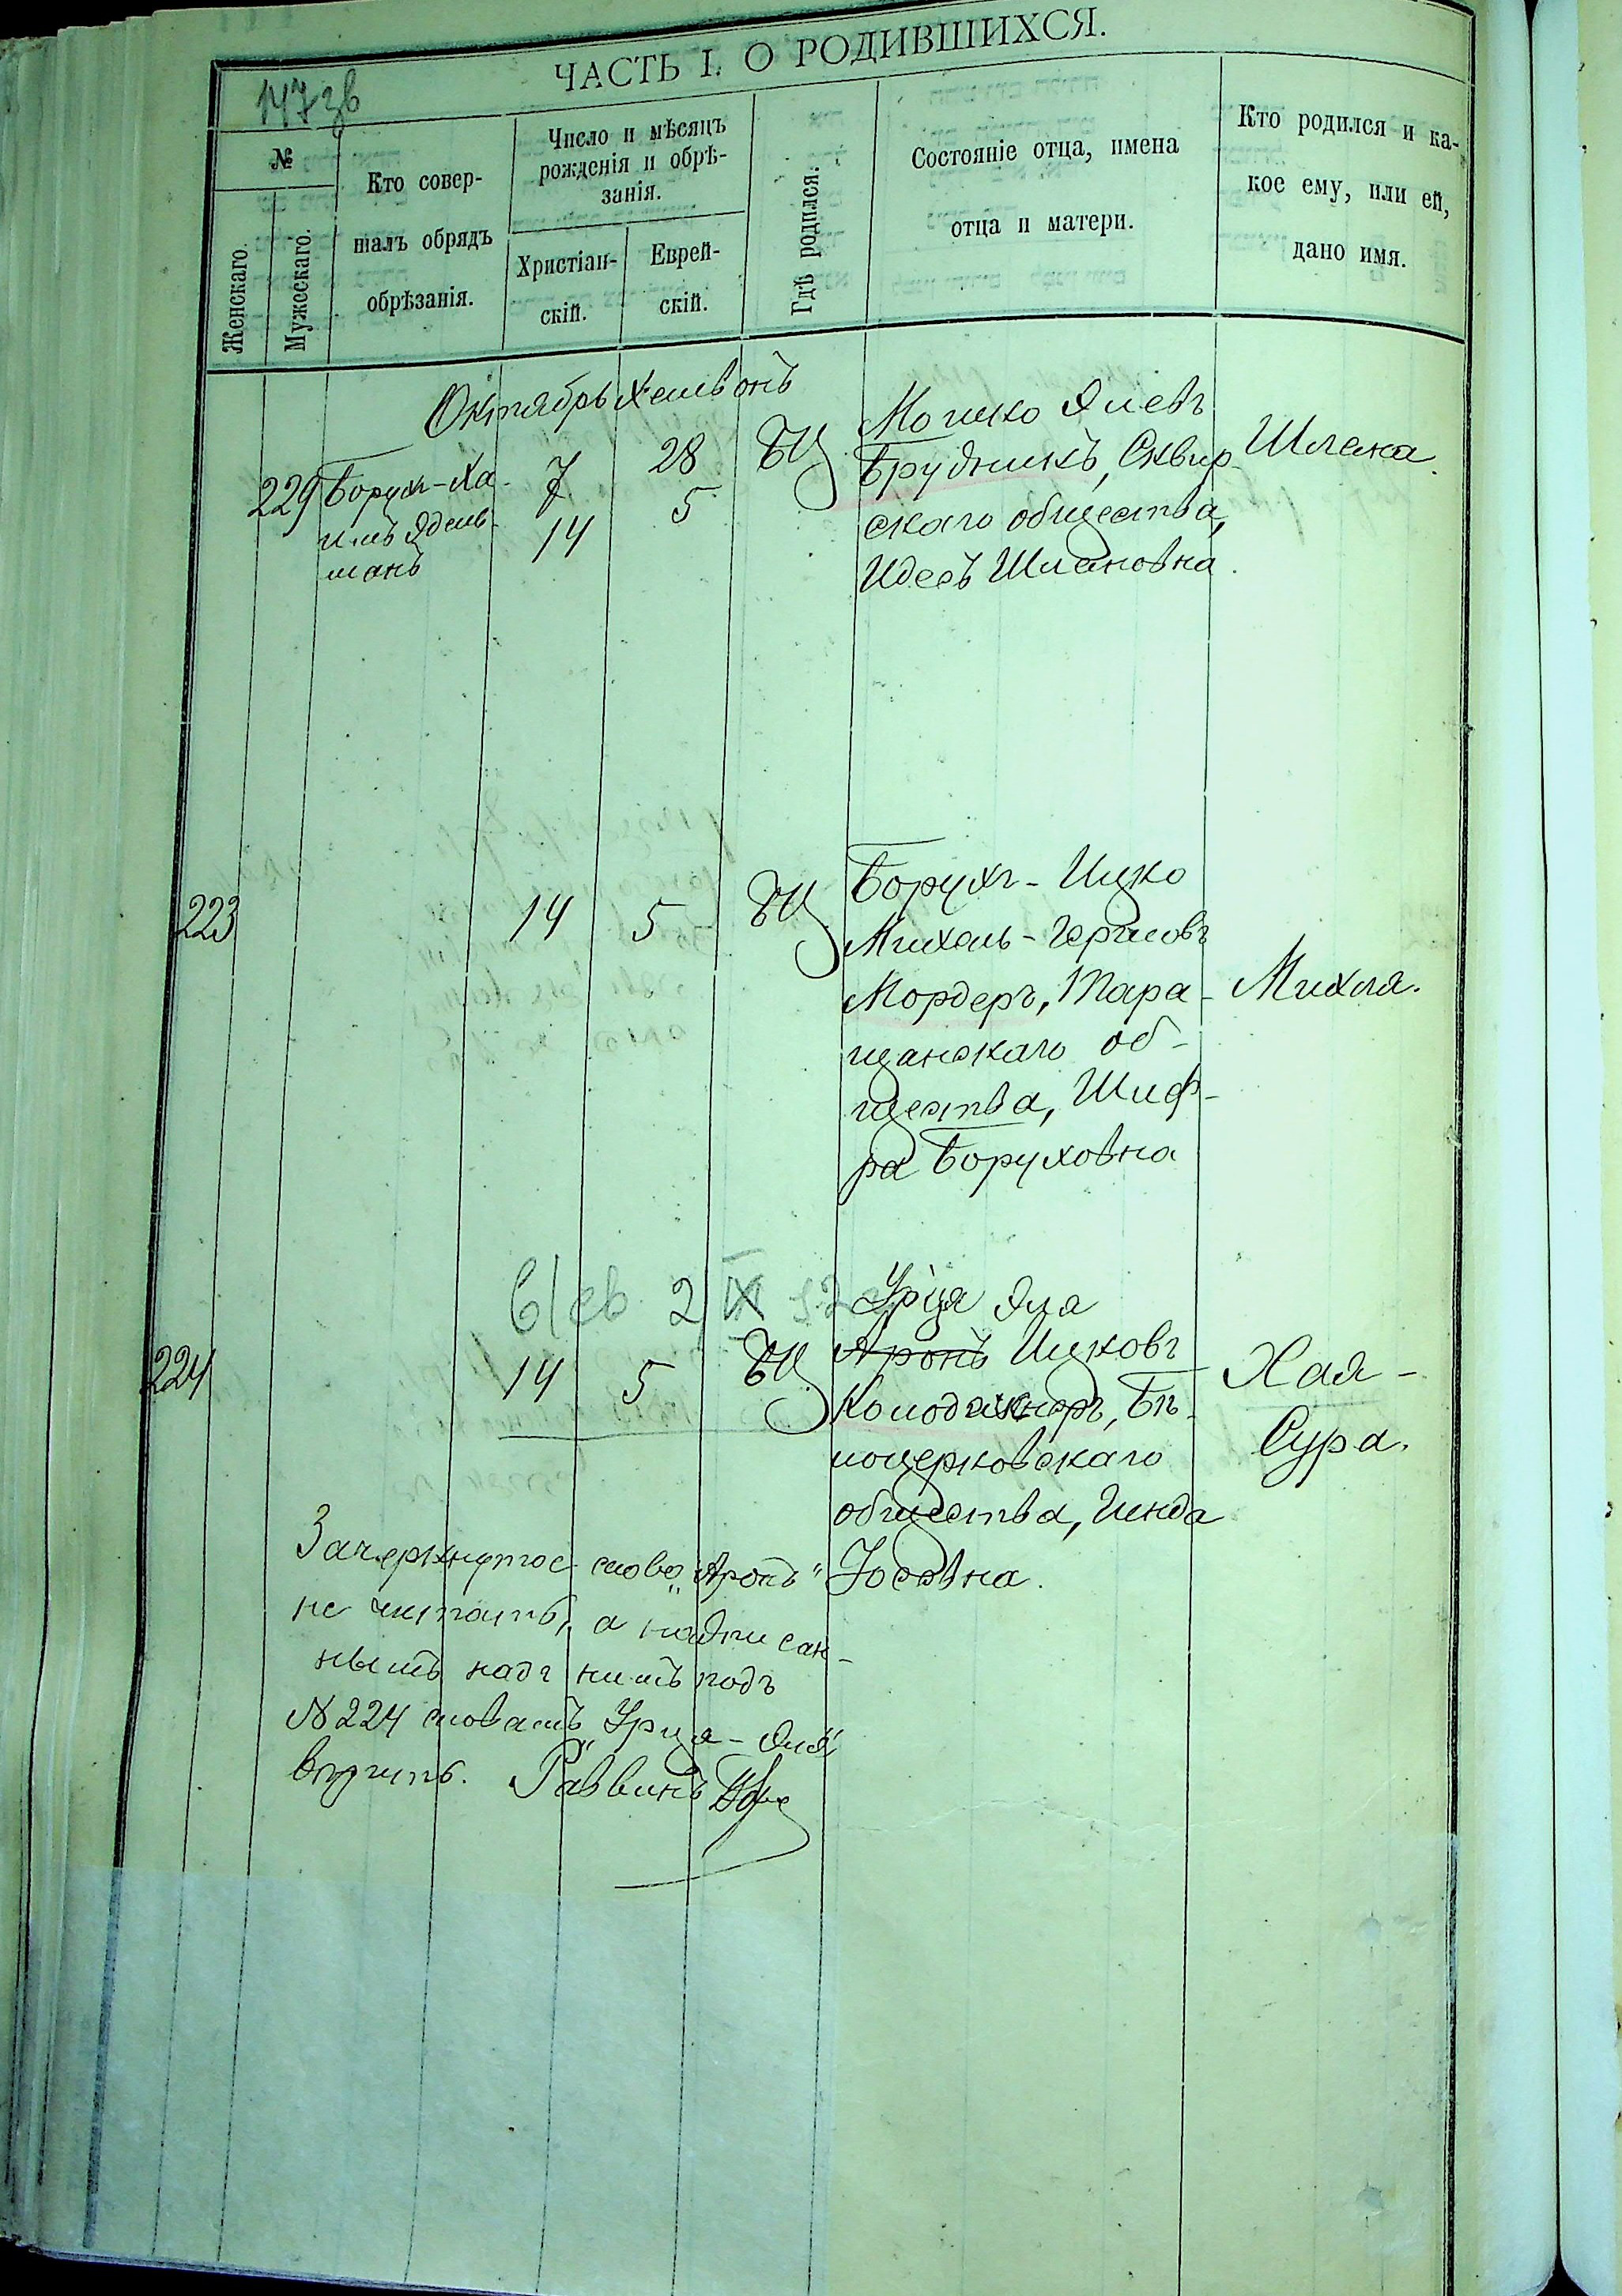 ЧАСТЬ I. О РОДИВШИХСЯ.
147зв
№
Женскаго.
Мужескаго.
Кто совер-
шалъ обрядъ
обрѣзанія.
Число и мѣсяцъ
рожденія и обрѣ-
занія.
Христіан-
скій.
Еврей-
скій.
Гдѣ родился.
Состояніе отца, имена
отца и матери.
Кто родился и ка-
кое ему, или ей,
дано имя.
Октябрь Хешвонъ
229
Борухъ-Ха-
имъ Эдель-
манъ
7
14
28
5
БЦ
Мошко Элевъ
Брудникъ, Сквир-
скаго общества,
Идесъ Шлемовна.
Шлема.
223
14
5
БЦ
Борухъ-Ицко
Михель-Гершовъ
Мордеръ, Тара-
щанскаго об-
щества, Шиф-
ра Боруховна
Михля.
6/св 2 IX
Урця Эля
224
14
5
БЦ
Аронъ Ицковъ
Колодижнеръ, Бѣ-
лоцерковскаго
общества, Гинда
Іосевна.
Хая-
Сура.
Зачеркнутое слово „Аронъ"
не читать, а надписан-
нымъ надъ нимъ подъ
№ 224 словамъ „Урця-Эля"
вѣрить. Раввинъ